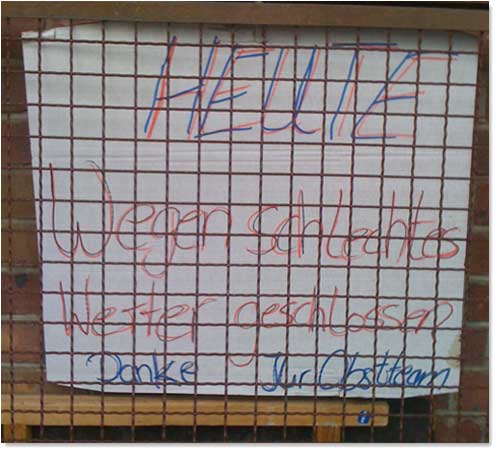 HEUTE
Wegen schlechtes
Wetter geschlossen
Danke Ihr Obstteam